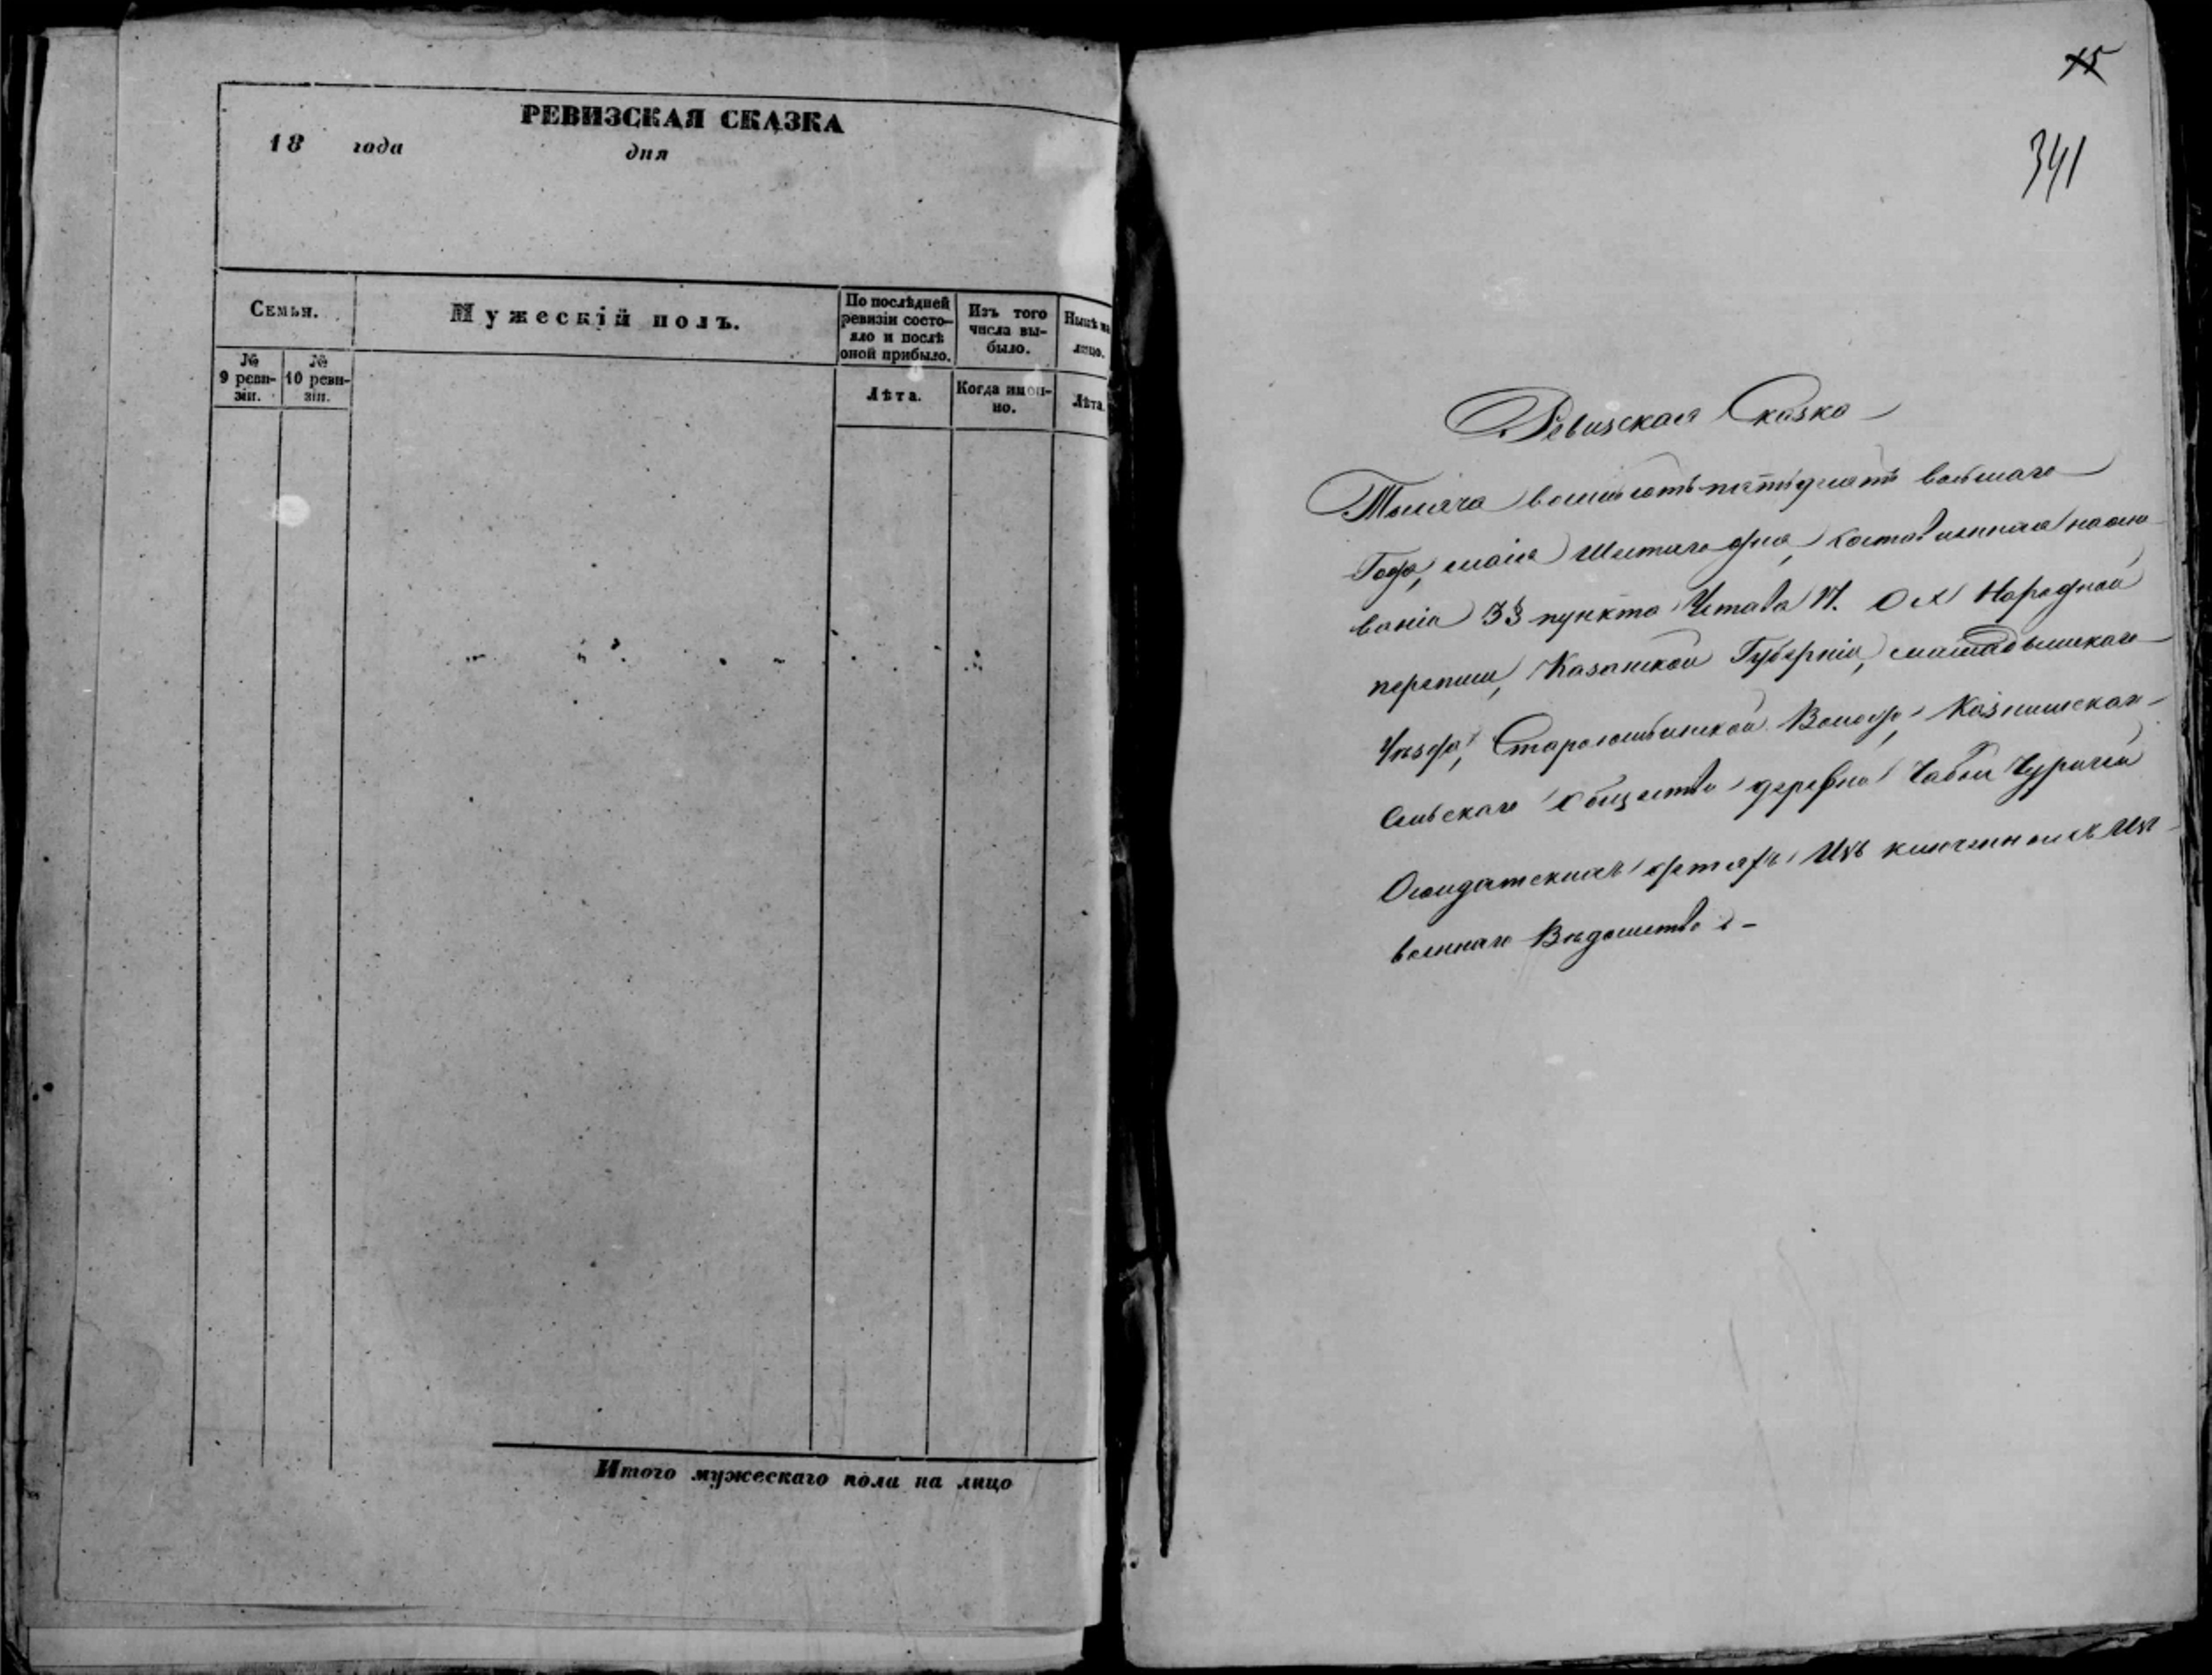 РЕВИЗСКАЯ СКАЗКА
18 года дня
Семья.
Мужескій полъ.
По послѣдней ревизіи состо-
яло и послѣ оной прибыло.
Изъ того числа вы-
было.
Нынѣ на лицо.
№ 9 реви-
зіи.
№ 10 реви-
зіи.
Лѣта.
Когда имен-
но.
Лѣта.
Итого мужескаго пола на лицо
15
341
Ревизская Сказка
Тысяча восемьсотъ пятьдесятъ восьмаго
Года, маія шестаго дня, составленная на осно
ваніи 3§ пункта Устава О Народной
переписи, Казанской Губерніи, мамадышскаго
Уѣзда, Волости,
Сельскаго общества деревни Чабьи Чурчей
О солдатскихъ дѣтяхъ Исключенныхъ изъ
военнаго Вѣдомства